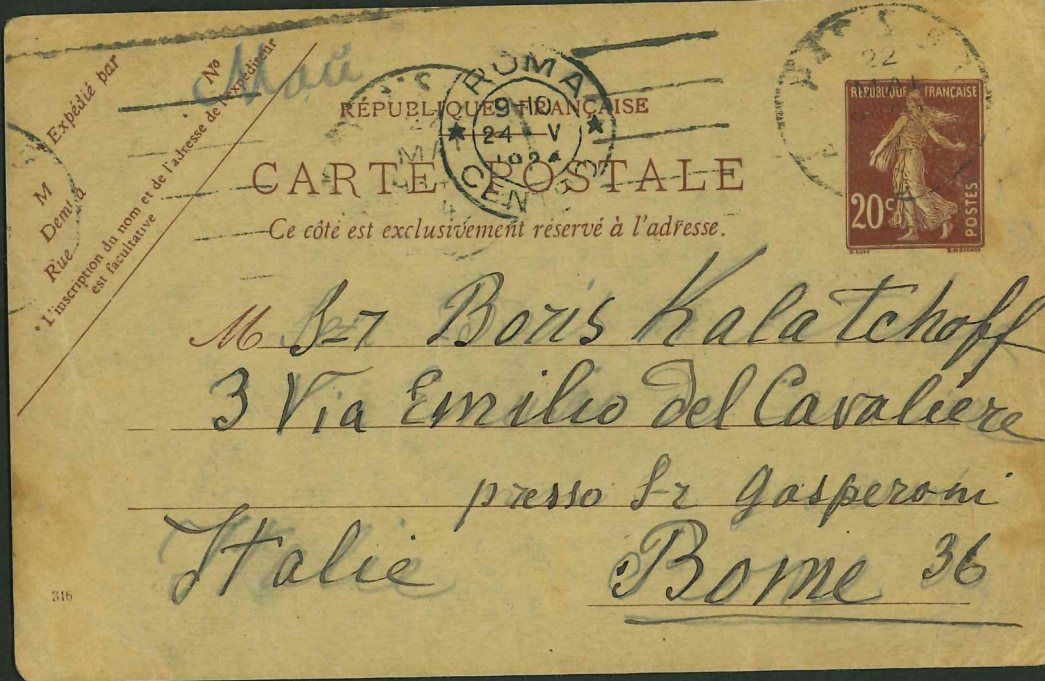 * Expédié par
M
Demt à
Rue
No
* L'inscription du nom et de l'adresse de l'expéditeur
est facultative
Май
RÉPUBLIQUE FRANÇAISE
CARTE POSTALE
Ce côté est exclusivement réservé à l'adresse.
ROMA
9-10
24 V
1924
CENTRO
22
RÉPUBLIQUE FRANÇAISE
20c
POSTES
M S-r Boris Kalatchoff
3 Via Emilio del Cavaliere
presso S-r Gasperoni
Italie Rome 36
316